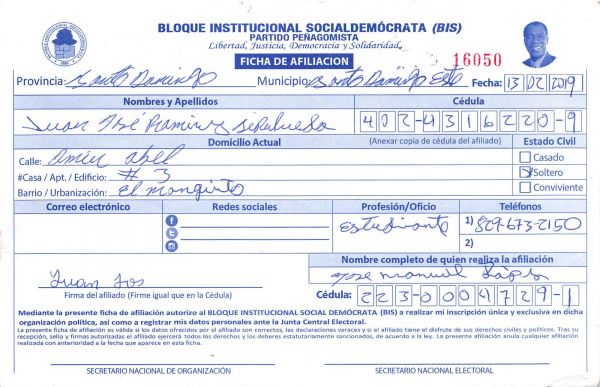 BLOQUE INSTITUCIONAL SOCIALDEMÓCRATA (BIS)
PARTIDO PEÑAGOMISTA
Libertad, Justicia, Democracia y Solidaridad
FICHA DE AFILIACION
16050
Provincia: Santo Domingo Municipio: Santo Domingo Este Fecha: 13 02 2019
Nombres y Apellidos Cédula
Juan José Ramirez Sepulveda 402-4316220-9
Domicilio Actual (Anexar copia de cédula del afiliado) Estado Civil
Calle: abel Casado
#Casa / Apt. / Edificio: # 3 Soltero
Barrio / Urbanización: El manguito Conviviente
Correo electrónico Redes sociales Profesión/Oficio Teléfonos
Estudiante 1) 829-673-2150
2)
Nombre completo de quien realiza la afiliación
Juan Jos Jose manuel
Firma del afiliado (Firme igual que en la Cédula) Cédula: 223-0004729-1
Mediante la presente ficha de afiliación autorizo al BLOQUE INSTITUCIONAL SOCIAL DEMÓCRATA (BIS) a realizar mi inscripción única y exclusiva en dicha
organización política, así como a registrar mis datos personales ante la Junta Central Electoral.
La presente ficha de afiliación es válida si los datos ofrecidos por el afiliado son correctos, las declaraciones veraces y si el afiliado tiene el disfrute de sus derechos civiles y políticos. Tras su
recepción, sello y firmas autorizadas el afiliado ejercerá todos los derechos y los deberes estatutariamente sancionados, de acuerdo a la ley. La presente afiliación anula cualquier afiliación
realizada con anterioridad a la fecha que aparece en esta ficha.
SECRETARIO NACIONAL DE ORGANIZACIÓN SECRETARIO NACIONAL ELECTORAL